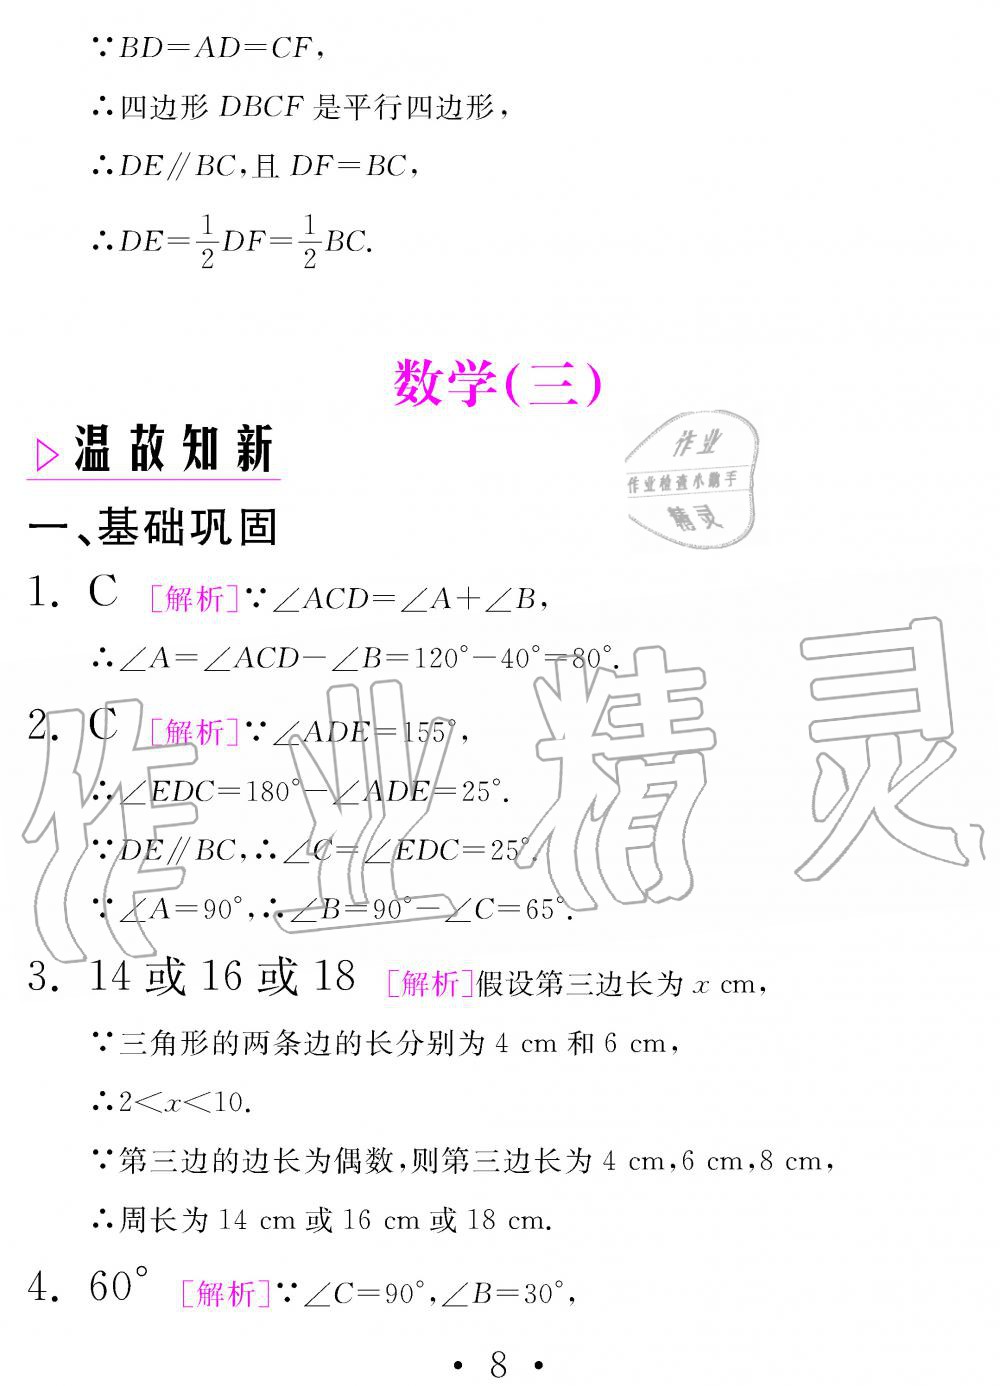 ∵BD=AD=CF,
∴四边形 DBCF 是平行四边形,
∴DE∥BC,且 DF=BC,
∴DE=1/2DF=1/2BC.
数学(三)
▷温故知新
作业
作业检查小助手
精灵
一、基础巩固
1. C [解析]∵∠ACD=∠A+∠B,
∴∠A=∠ACD-∠B=120°-40°=80°.
2. C [解析]∵∠ADE=155°,
∴∠EDC=180°-∠ADE=25°.
∵DE∥BC,∴∠C=∠EDC=25°.
∵∠A=90°,∴∠B=90°-∠C=65°.
作业精灵
3. 14 或 16 或 18 [解析]假设第三边长为 x cm,
∵三角形的两条边的长分别为 4 cm 和 6 cm,
∴2<x<10.
∵第三边的边长为偶数,则第三边长为 4 cm,6 cm,8 cm,
∴周长为 14 cm 或 16 cm 或 18 cm.
4. 60° [解析]∵∠C=90°,∠B=30°,
• 8 •